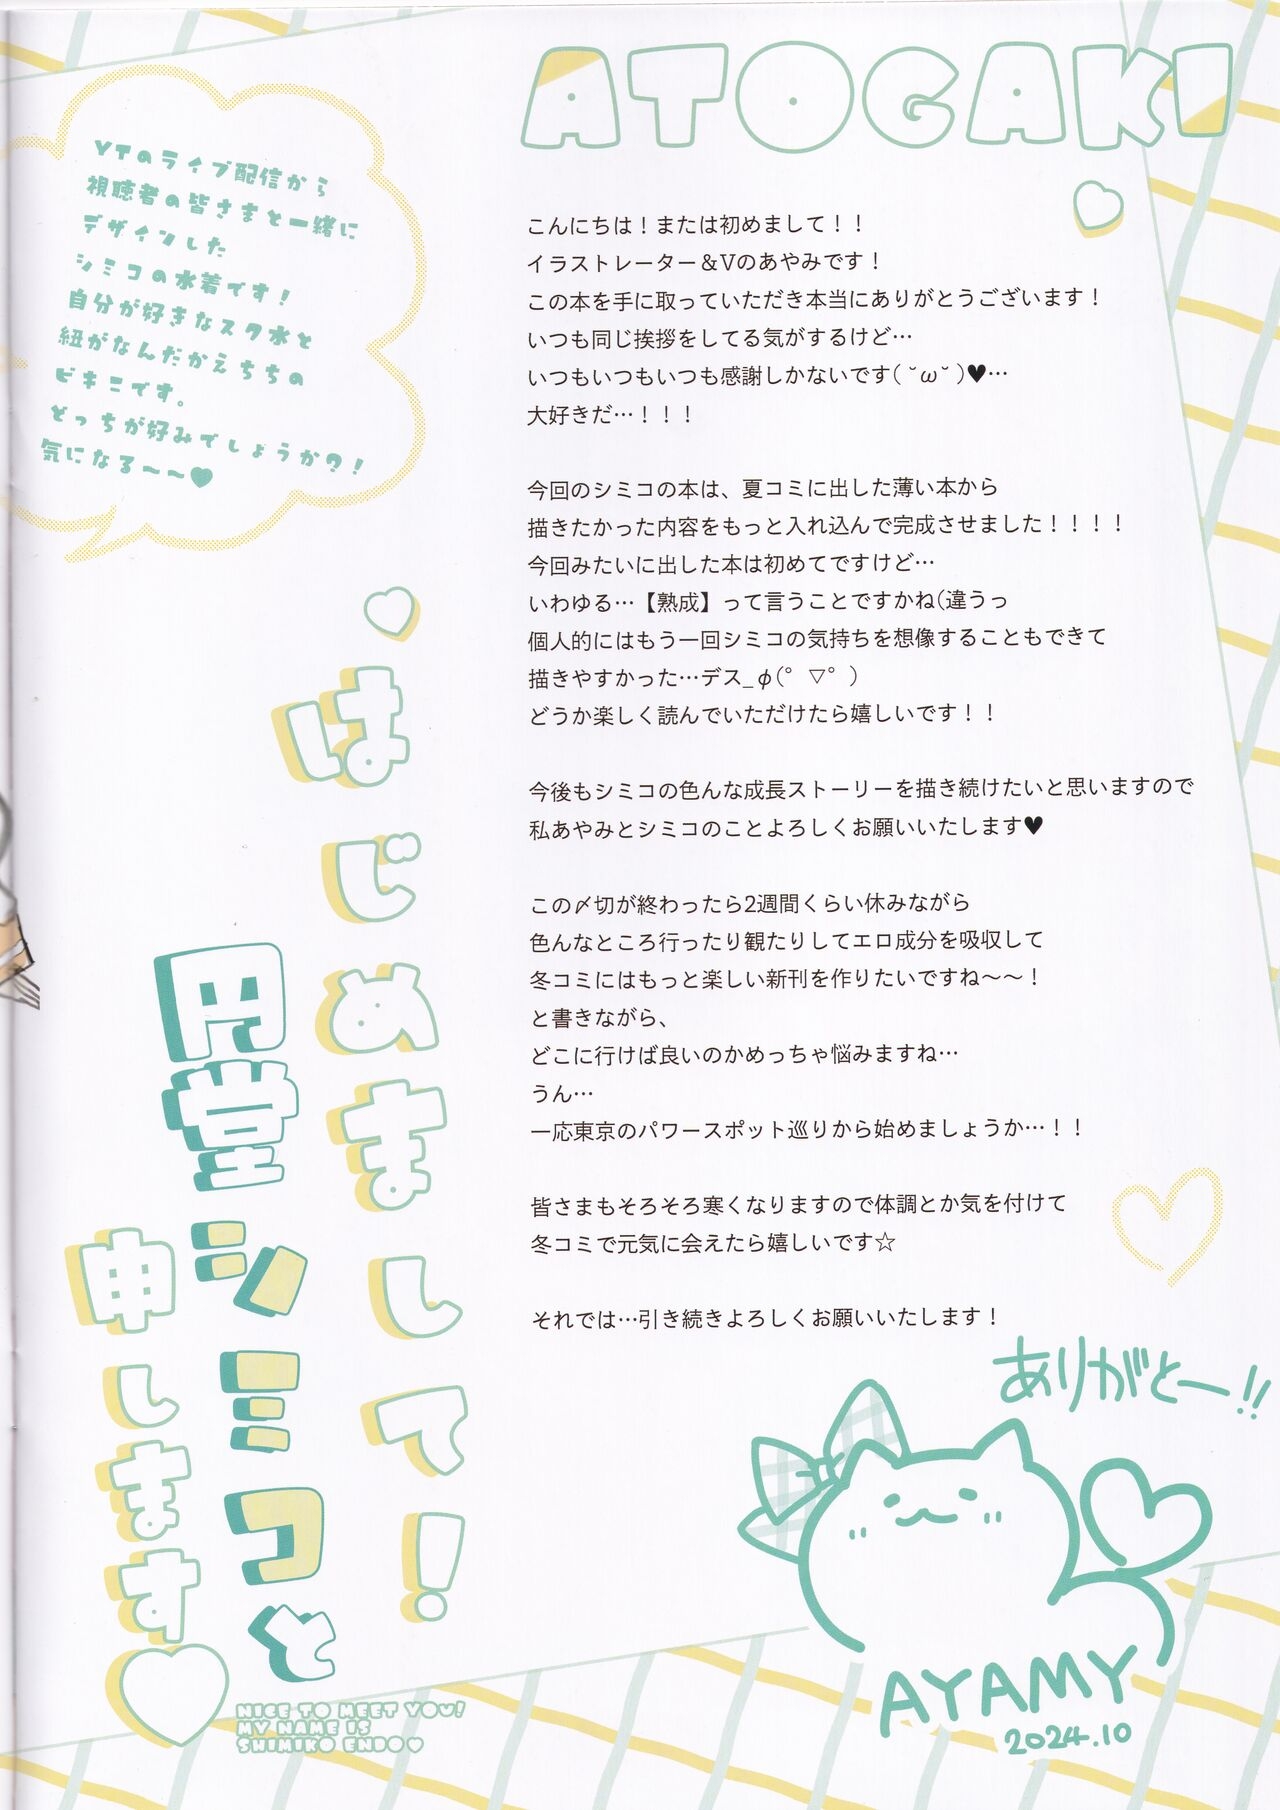 ATOGAKI
VTのライブ配信から
視聴者の皆さまと一緒に
デザインした
シミコの水着です！
自分が好きなスク水と
紐がなんだかえちちの
ビキニです。
どっちが好みでしょうか？！
気になる～～♥
こんにちは！または初めまして！！
イラストレーター＆Vのあやみです！
この本を手に取っていただき本当にありがとうございます！
いつも同じ挨拶をしてる気がするけど…
いつもいつもいつも感謝しかないです( ˘ω˘ )♥…
大好きだ…！！！
今回のシミコの本は、夏コミに出した薄い本から
描きたかった内容をもっと入れ込んで完成させました！！！！
今回みたいに出した本は初めてですけど…
いわゆる…【熟成】って言うことですかね(違うっ
個人的にはもう一回シミコの気持ちを想像することもできて
描きやすかった…デス_φ(ﾟ ▽ﾟ )
どうか楽しく読んでいただけたら嬉しいです！！
今後もシミコの色んな成長ストーリーを描き続けたいと思いますので
私あやみとシミコのことよろしくお願いいたします♥
この〆切が終わったら2週間くらい休みながら
色んなところ行ったり観たりしてエロ成分を吸収して
冬コミにはもっと楽しい新刊を作りたいですね～～！
と書きながら、
どこに行けば良いのかめっちゃ悩みますね…
うん…
一応東京のパワースポット巡りから始めましょうか…！！
皆さまもそろそろ寒くなりますので体調とか気を付けて
冬コミで元気に会えたら嬉しいです☆
それでは…引き続きよろしくお願いいたします！
はじめまして！
円堂シミコと
申します♡
NICE TO MEET YOU!
MY NAME IS
SHIMIKO ENDO♥
ありがとー!!
AYAMY
2024.10